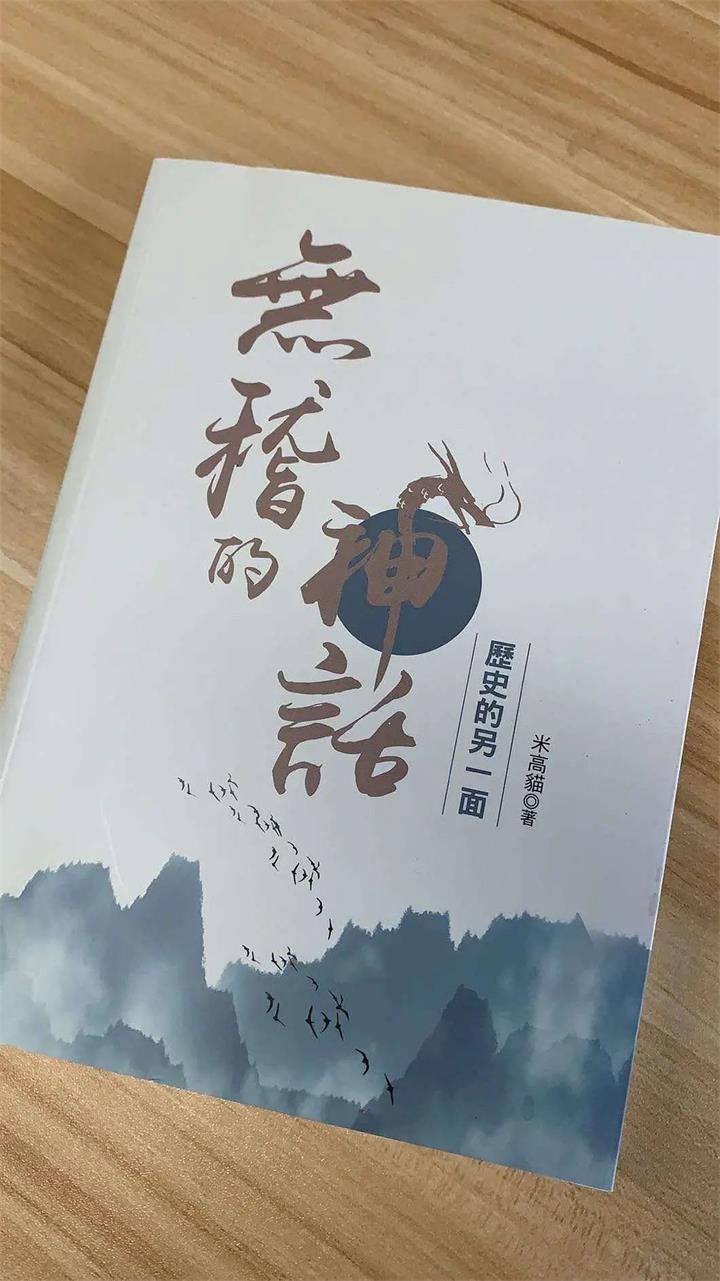 無稽的
神話
歷史的另一面
米高貓◎著